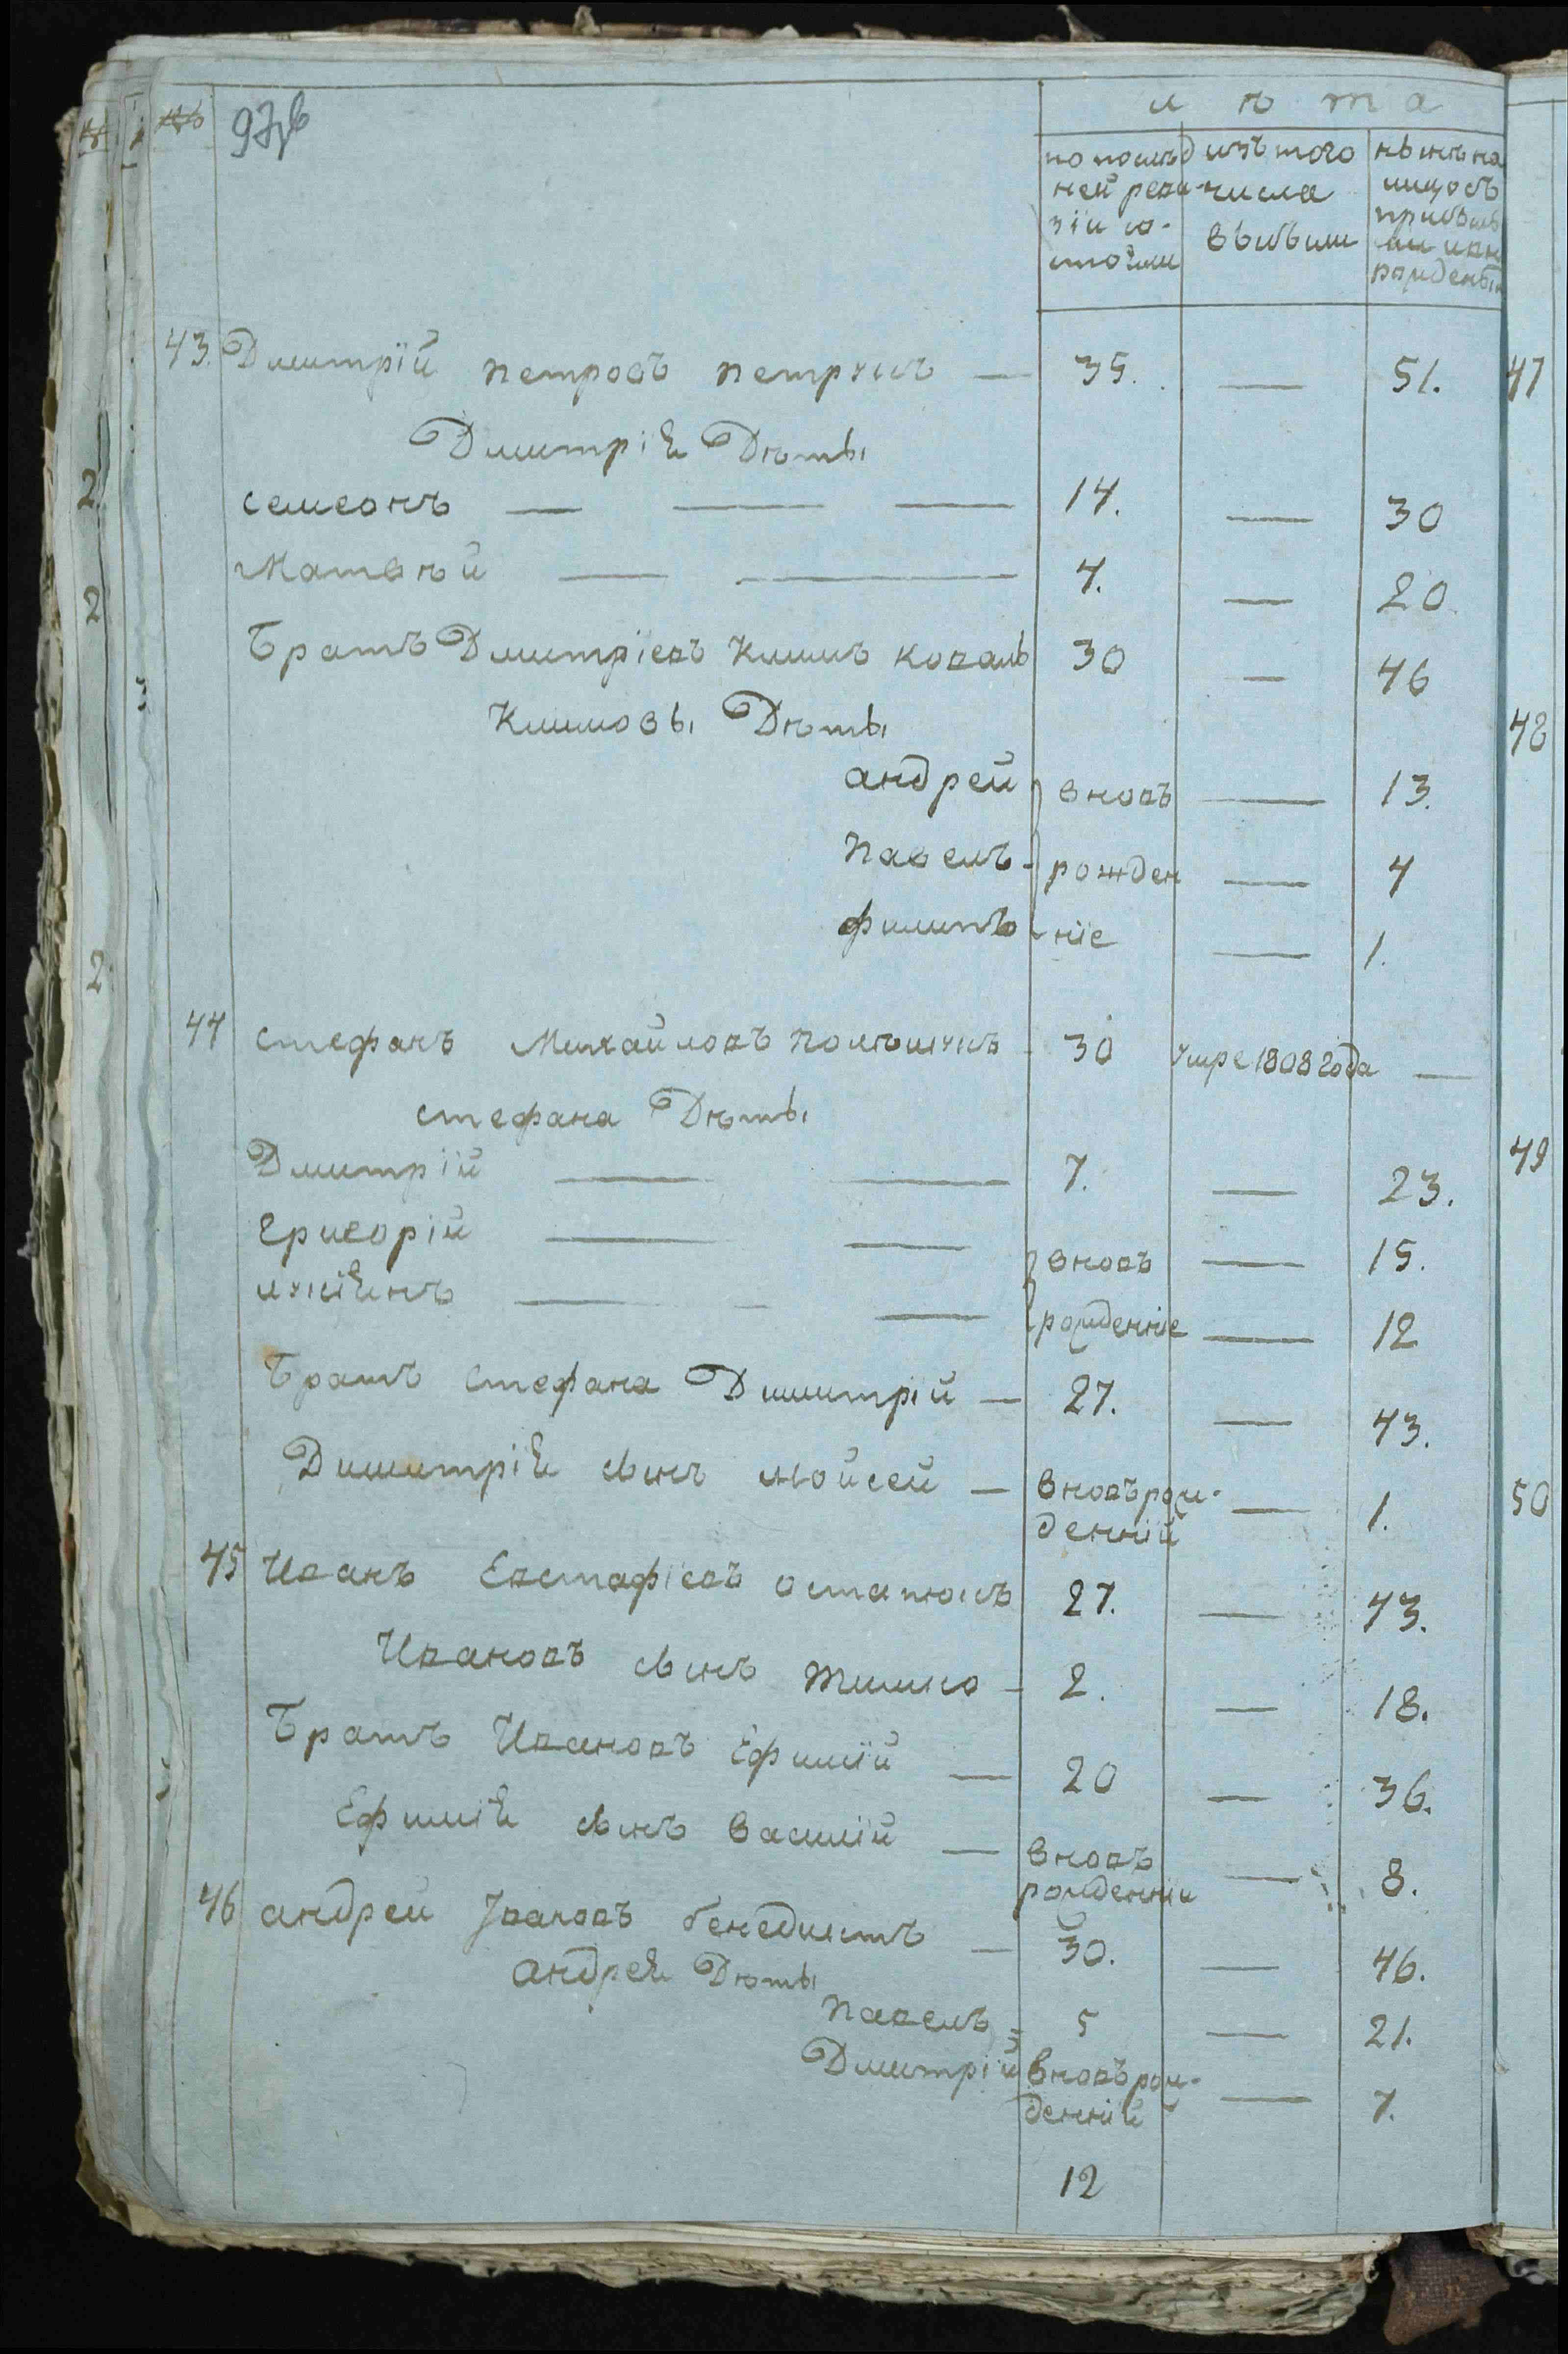 лѣта
по послѣд
ней реви
зіи со-
стояли
изъ того
числа
выбыли
нынѣ на
лицо съ
прибыв
43. Дмитрій Петровъ Петрукъ — 35. — 51.
Дмитрія Дѣти
Семеонъ — — — 14. — 30
Матвѣй — — 4. — 20
Братъ Дмитріевъ Климъ Коваль 30 — 46
Климовы Дѣти
андрей вновъ — 13.
Павелъ рожден — 4
филипъ ніе — 1.
44 Стефанъ Михайловъ Полѣщукъ 30 умре 1808 года —
Стефана Дѣти
Дмитрій — — 7. — 23.
Григорій — — вновъ — 15.
лукіянъ — — — рожденніе — 12
Братъ Стефана Димитрій — 27. — 43.
Димитрія сынъ Мойсей — вновъ рож-
денній — 1.
45 Иванъ Евстафіевъ Остапюкъ 27. — 43.
Ивановъ сынъ Тимко — 2. — 18.
Братъ Ивановъ Ефимій — 20 — 36.
Ефимія сынъ Василій — вновъ
рожденни — 8.
46 андрей Івановъ бенедиктъ — 30. — 46.
андрея Дѣти
Павелъ 5 — 21.
Дмитрій вновъ рож-
денній — 7.
12
2
2
3
2
47
48
49
50